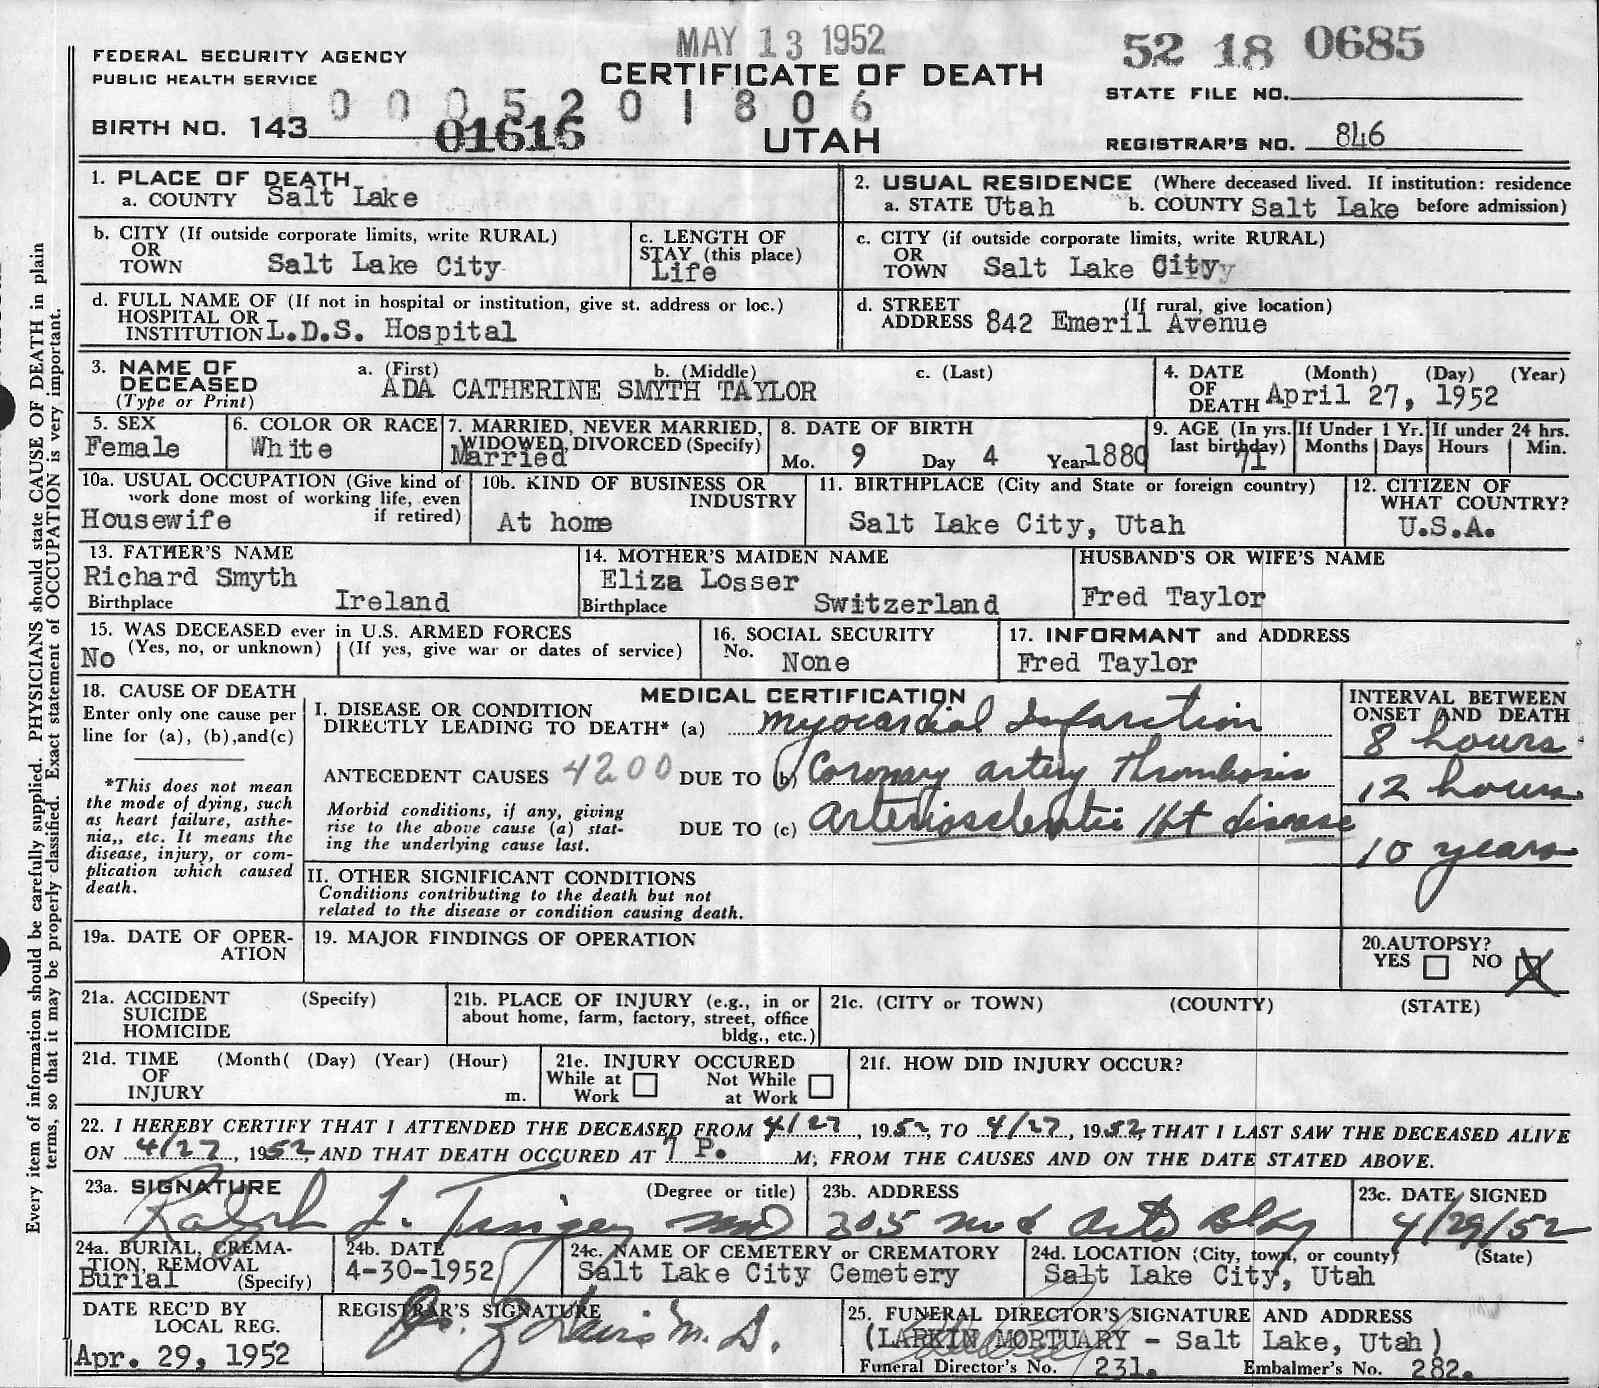 MAY 13 1952
52 18 0685
FEDERAL SECURITY AGENCY
PUBLIC HEALTH SERVICE
CERTIFICATE OF DEATH
STATE FILE NO.
0005201806
BIRTH NO. 143 01616
UTAH
REGISTRAR'S NO. 846
Every item of information should be carefully supplied. PHYSICIANS should state CAUSE OF DEATH in plain
terms, so that it may be properly classified. Exact statement of OCCUPATION is very important.
1. PLACE OF DEATH
a. COUNTY Salt Lake
2. USUAL RESIDENCE (Where deceased lived. If institution: residence
a. STATE Utah b. COUNTY Salt Lake before admission)
b. CITY (If outside corporate limits, write RURAL)
OR
TOWN Salt Lake City
c. LENGTH OF
STAY (this place)
Life
c. CITY (if outside corporate limits, write RURAL)
OR
TOWN Salt Lake Cityy
d. FULL NAME OF (If not in hospital or institution, give st. address or loc.)
HOSPITAL OR
INSTITUTION L.D.S. Hospital
d. STREET (If rural, give location)
ADDRESS 842 Emeril Avenue
3. NAME OF
DECEASED
(Type or Print)
a. (First) b. (Middle) c. (Last)
ADA CATHERINE SMYTH TAYLOR
4. DATE (Month) (Day) (Year)
OF
DEATH April 27, 1952
5. SEX
Female
6. COLOR OR RACE
White
7. MARRIED, NEVER MARRIED,
WIDOWED, DIVORCED (Specify)
Married
8. DATE OF BIRTH
Mo. 9 Day 4 Year 1880
9. AGE (In yrs.
last birthday)
71
If Under 1 Yr.
Months Days
If under 24 hrs.
Hours Min.
10a. USUAL OCCUPATION (Give kind of
work done most of working life, even
if retired)
Housewife
10b. KIND OF BUSINESS OR
INDUSTRY
At home
11. BIRTHPLACE (City and State or foreign country)
Salt Lake City, Utah
12. CITIZEN OF
WHAT COUNTRY?
U.S.A.
13. FATHER'S NAME
Richard Smyth
Birthplace Ireland
14. MOTHER'S MAIDEN NAME
Eliza Losser
Birthplace Switzerland
HUSBAND'S OR WIFE'S NAME
Fred Taylor
15. WAS DECEASED ever in U.S. ARMED FORCES
(Yes, no, or unknown) (If yes, give war or dates of service)
No
16. SOCIAL SECURITY
No. None
17. INFORMANT and ADDRESS
Fred Taylor
18. CAUSE OF DEATH
Enter only one cause per
line for (a), (b), and(c)
*This does not mean
the mode of dying, such
as heart failure, asthe-
nia,, etc. It means the
disease, injury, or com-
plication which caused
death.
MEDICAL CERTIFICATION
I. DISEASE OR CONDITION
DIRECTLY LEADING TO DEATH* (a) Myocardial Infarction
ANTECEDENT CAUSES 4200 DUE TO (b) Coronary artery thrombosis
Morbid conditions, if any, giving
rise to the above cause (a) stat-
ing the underlying cause last.
DUE TO (c) Arteriosclerotic Ht disease
INTERVAL BETWEEN
ONSET AND DEATH
8 hours
12 hours
10 years
II. OTHER SIGNIFICANT CONDITIONS
Conditions contributing to the death but not
related to the disease or condition causing death.
19a. DATE OF OPER-
ATION
19. MAJOR FINDINGS OF OPERATION
20. AUTOPSY?
YES NO X
21a. ACCIDENT (Specify)
SUICIDE
HOMICIDE
21b. PLACE OF INJURY (e.g., in or
about home, farm, factory, street, office
bldg., etc.)
21c. (CITY or TOWN) (COUNTY) (STATE)
21d. TIME (Month( (Day) (Year) (Hour)
OF
INJURY m.
21e. INJURY OCCURED
While at Work Not While at Work
21f. HOW DID INJURY OCCUR?
22. I HEREBY CERTIFY THAT I ATTENDED THE DECEASED FROM 4/27, 1952, TO 4/27, 1952, THAT I LAST SAW THE DECEASED ALIVE
ON 4/27, 1952, AND THAT DEATH OCCURED AT 7 P. M; FROM THE CAUSES AND ON THE DATE STATED ABOVE.
23a. SIGNATURE (Degree or title)
Ralph L. Tingey MD
23b. ADDRESS
205 Med Arts Bldg
23c. DATE SIGNED
4/29/52
24a. BURIAL, CREMA-
TION, REMOVAL
Burial (Specify)
24b. DATE
4-30-1952
24c. NAME OF CEMETERY or CREMATORY
Salt Lake City Cemetery
24d. LOCATION (City, town, or county) (State)
Salt Lake City, Utah
DATE REC'D BY
LOCAL REG.
Apr. 29, 1952
REGISTRAR'S SIGNATURE
M.D.
25. FUNERAL DIRECTOR'S SIGNATURE AND ADDRESS
(LARKIN MORTUARY - Salt Lake, Utah)
Funeral Director's No. 231. Embalmer's No. 282.